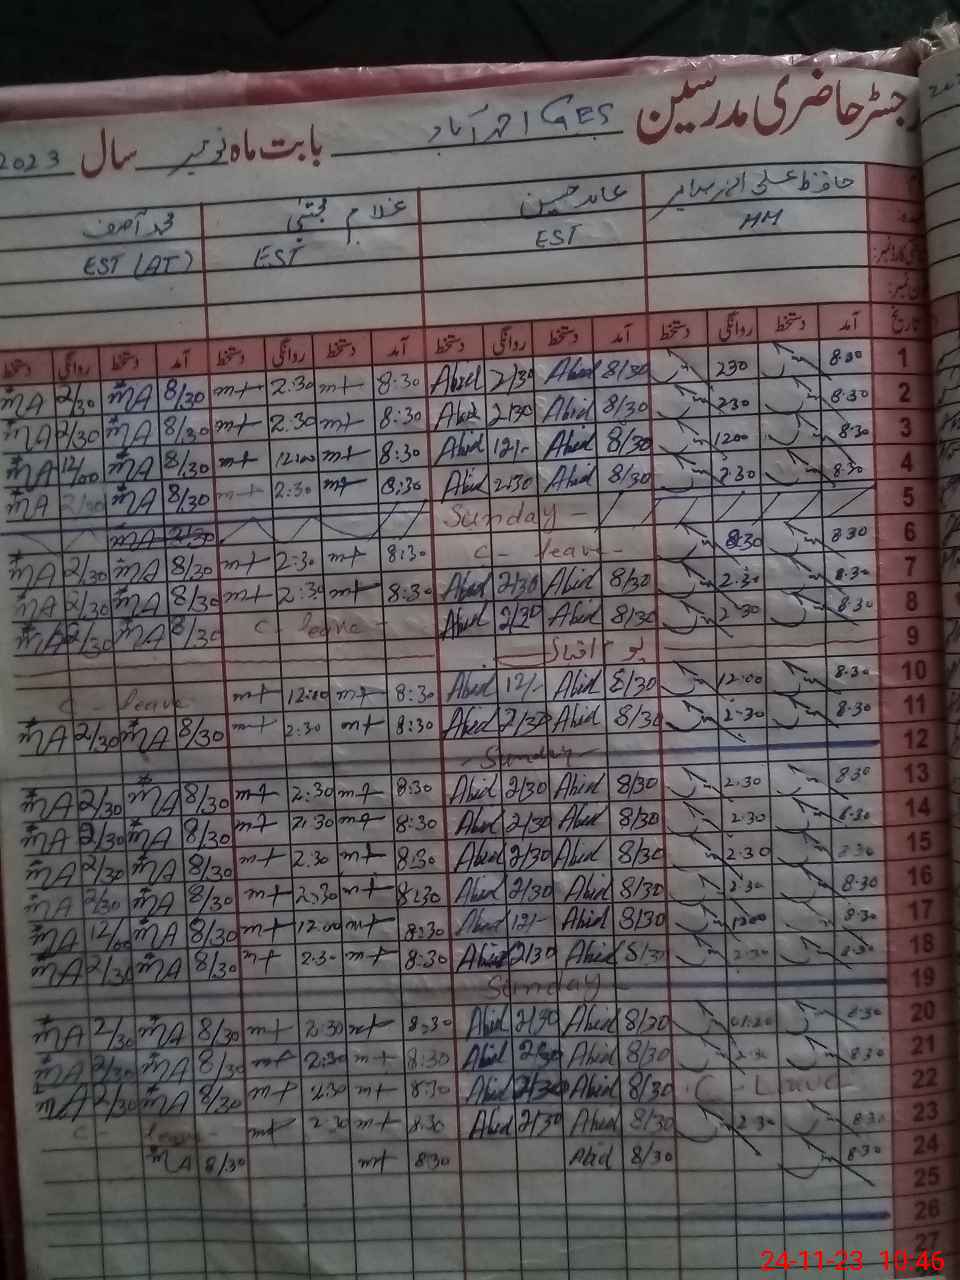 رجسٹر حاضری مدرسین GES احمد آباد بابت ماہ نومبر سال 2023
حافظ علی عابد حسین غلام مجتبیٰ محمد آصف
HM EST EST EST (AT)
تاریخ آمد دستخط روانگی دستخط آمد دستخط روانگی دستخط آمد دستخط روانگی دستخط آمد دستخط روانگی دستخط
1 8:30 230 8/30 Abid 2/30 Abid 8:30 mt 2:30 mt 8/30 MA 2/30 MA
2 8:30 230 8/30 Abid 2/30 Abid 8:30 mt 2:30 mt 8/30 MA 2/30 MA
3 8:30 1200 8/30 Abid 12/- Abid 8:30 mt 12:00 mt 8/30 MA 12/00 MA
4 8:30 2:30 8/30 Abid 2:30 Abid 8:30 mt 2:30 mt 8/30 MA 2/30 MA
5 Sunday -
6 8:30 8:30 C - leave - 8:30 mt 2:30 mt 8/30 MA 2/30 MA
7 8:30 2:30 8/30 Abid 2/30 Abid 8:30 mt 2:30 mt 8/30 MA 2/30 MA
8 8:30 2:30 8/30 Abid 2/30 Abid C - leave - 8/30 MA 2/30 MA
9 یوم اقبال
10 8:30 12:00 8/30 Abid 12/- Abid 8:30 mt 12:00 mt C - leave
11 8:30 2:30 8/30 Abid 2/30 Abid 8:30 mt 2:30 mt 8/30 MA 2/30 MA
12 Sunday
13 8:30 2:30 8/30 Abid 2/30 Abid 8:30 mt 2:30 mt 8/30 MA 2/30 MA
14 8:30 2:30 8/30 Abid 2/30 Abid 8:30 mt 2:30 mt 8/30 MA 2/30 MA
15 8:30 2:30 8/30 Abid 2/30 Abid 8:30 mt 2:30 mt 8/30 MA 2/30 MA
16 8:30 2:30 8/30 Abid 2/30 Abid 8:30 mt 2:30 mt 8/30 MA 2/30 MA
17 8:30 1200 8/30 Abid 12/- Abid 8:30 mt 12:00 mt 8/30 MA 12/00 MA
18 8:30 2:30 8/30 Abid 2/30 Abid 8:30 mt 2:30 mt 8/30 MA 2/30 MA
19 Sunday -
20 8:30 8/30 Abid 2/30 Abid 8:30 mt 2:30 mt 8/30 MA 2/30 MA
21 8:30 2:30 8/30 Abid 2/30 Abid 8:30 mt 2:30 mt 8/30 MA 2/30 MA
22 C - Leave 8/30 Abid 2/30 Abid 8:30 mt 2:30 mt 8/30 MA 2/30 MA
23 8:30 2:30 8/30 Abid 2/30 Abid 8:30 mt 2:30 mt C - leave -
24 8:30 8/30 Abid 8:30 mt 8/30 MA
25
26
27
24-11-23 10:46